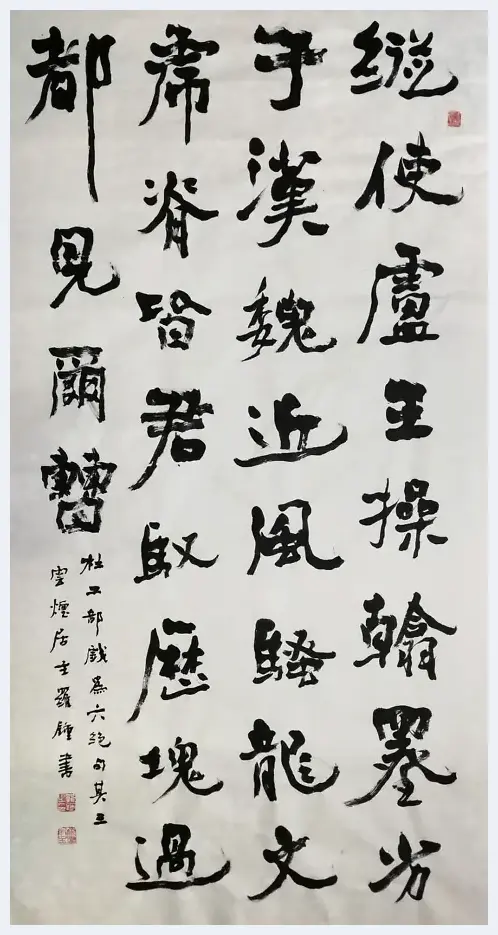 縱使盧王操翰墨劣
于漢魏近風騷龍文
虎脊皆君馭歷塊過
都見爾曹
杜工部戲為六絕句其三
煙居主羅鍾書